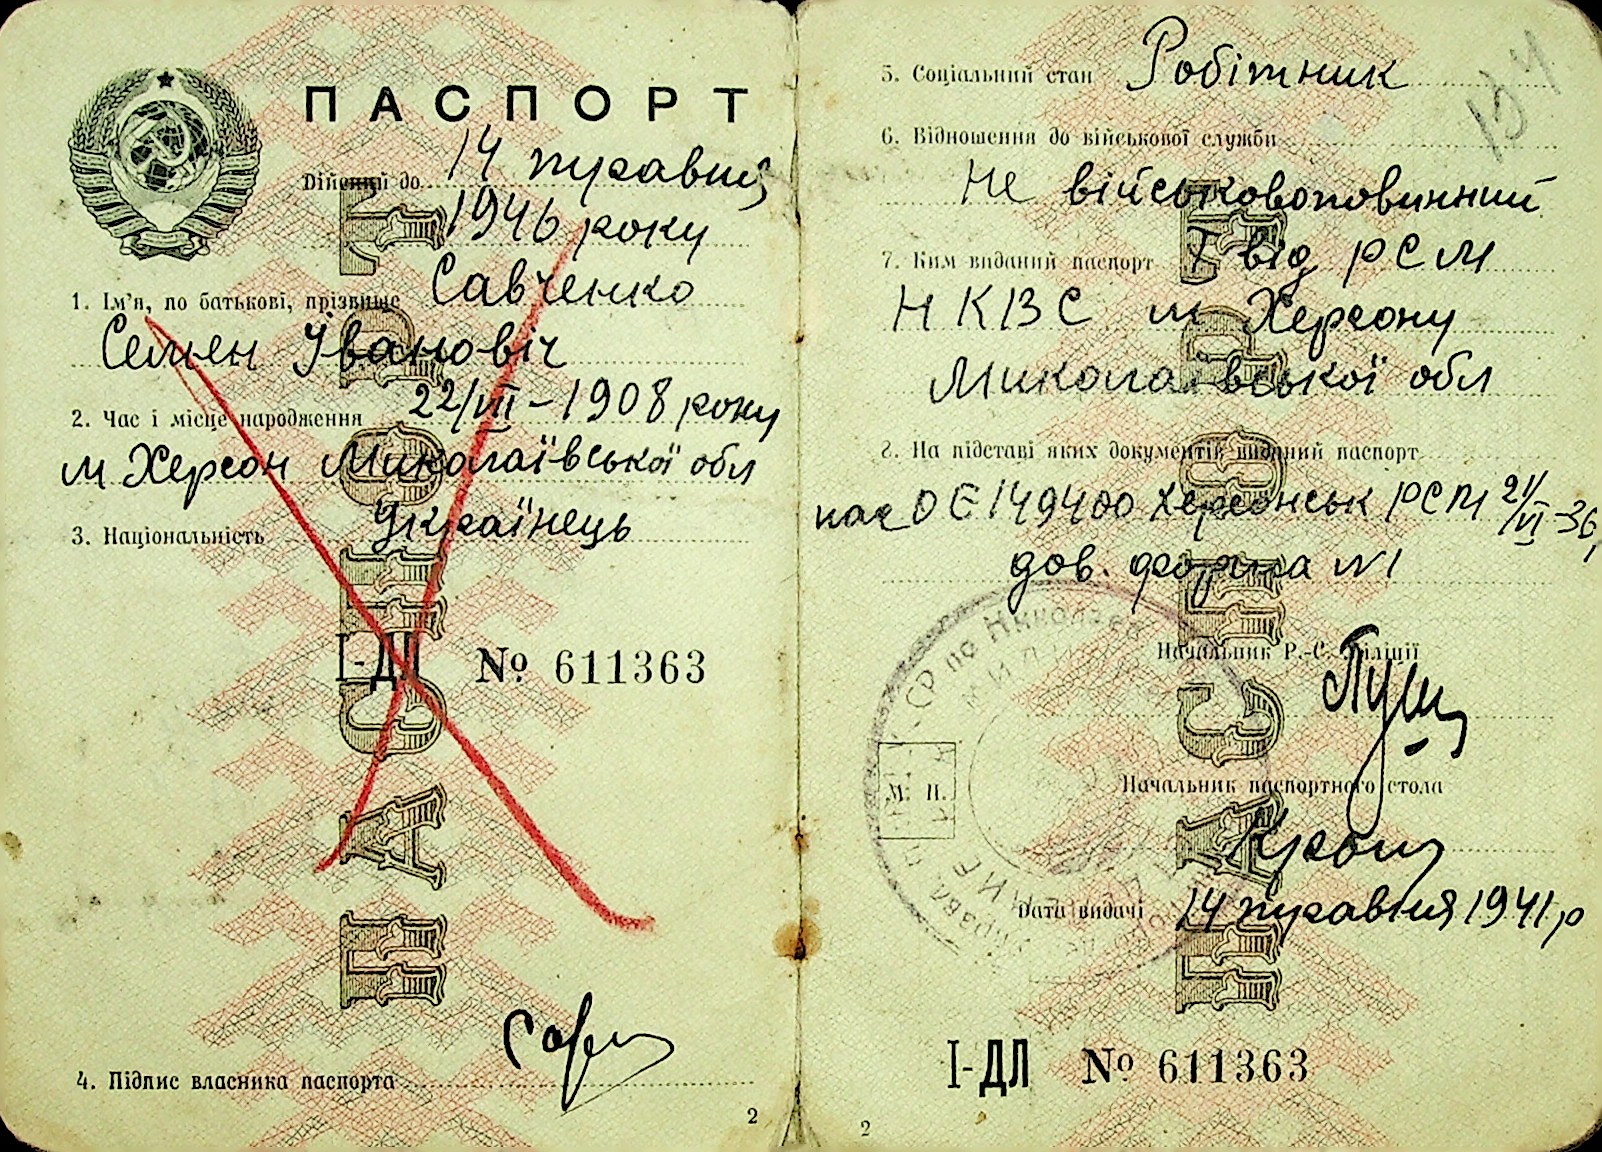 ПАСПОРТ
Дійсний до 14 травня
1946 року
1. Ім'я, по батькові, прізвище Савченко
Семен Іванович
2. Час і місце народження 22/VIII-1908 року
м Херсон Миколаївської обл
3. Національність Українець
I-ДЛ № 611363
4. Підпис власника паспорта
2
5. Соціальний стан Робітник
6. Відношення до військової служби
Не військовоповинний
7. Ким виданий паспорт I від РСМ
НКВС м Херсону
Миколаївської обл
8. На підставі яких документів виданий паспорт
пас ОЄ 149400 Херсонськ РСМ 21/VI-36,
дов. форма N1
Начальник Р.-С. Міліції
Начальник паспортного стола
М. П.
Дата видачі 14 травня 1941 р
I-ДЛ № 611363
2
ПАСПОРТ
ПАСПОРТ